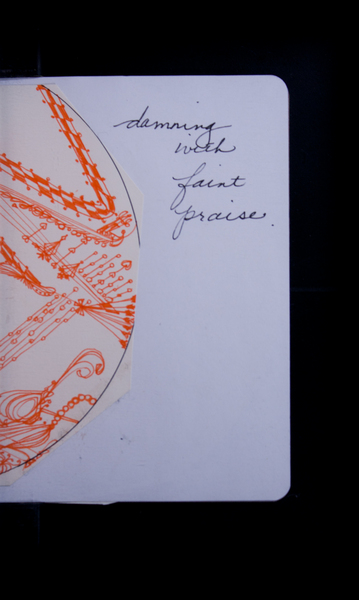 damning
with
faint
praise.